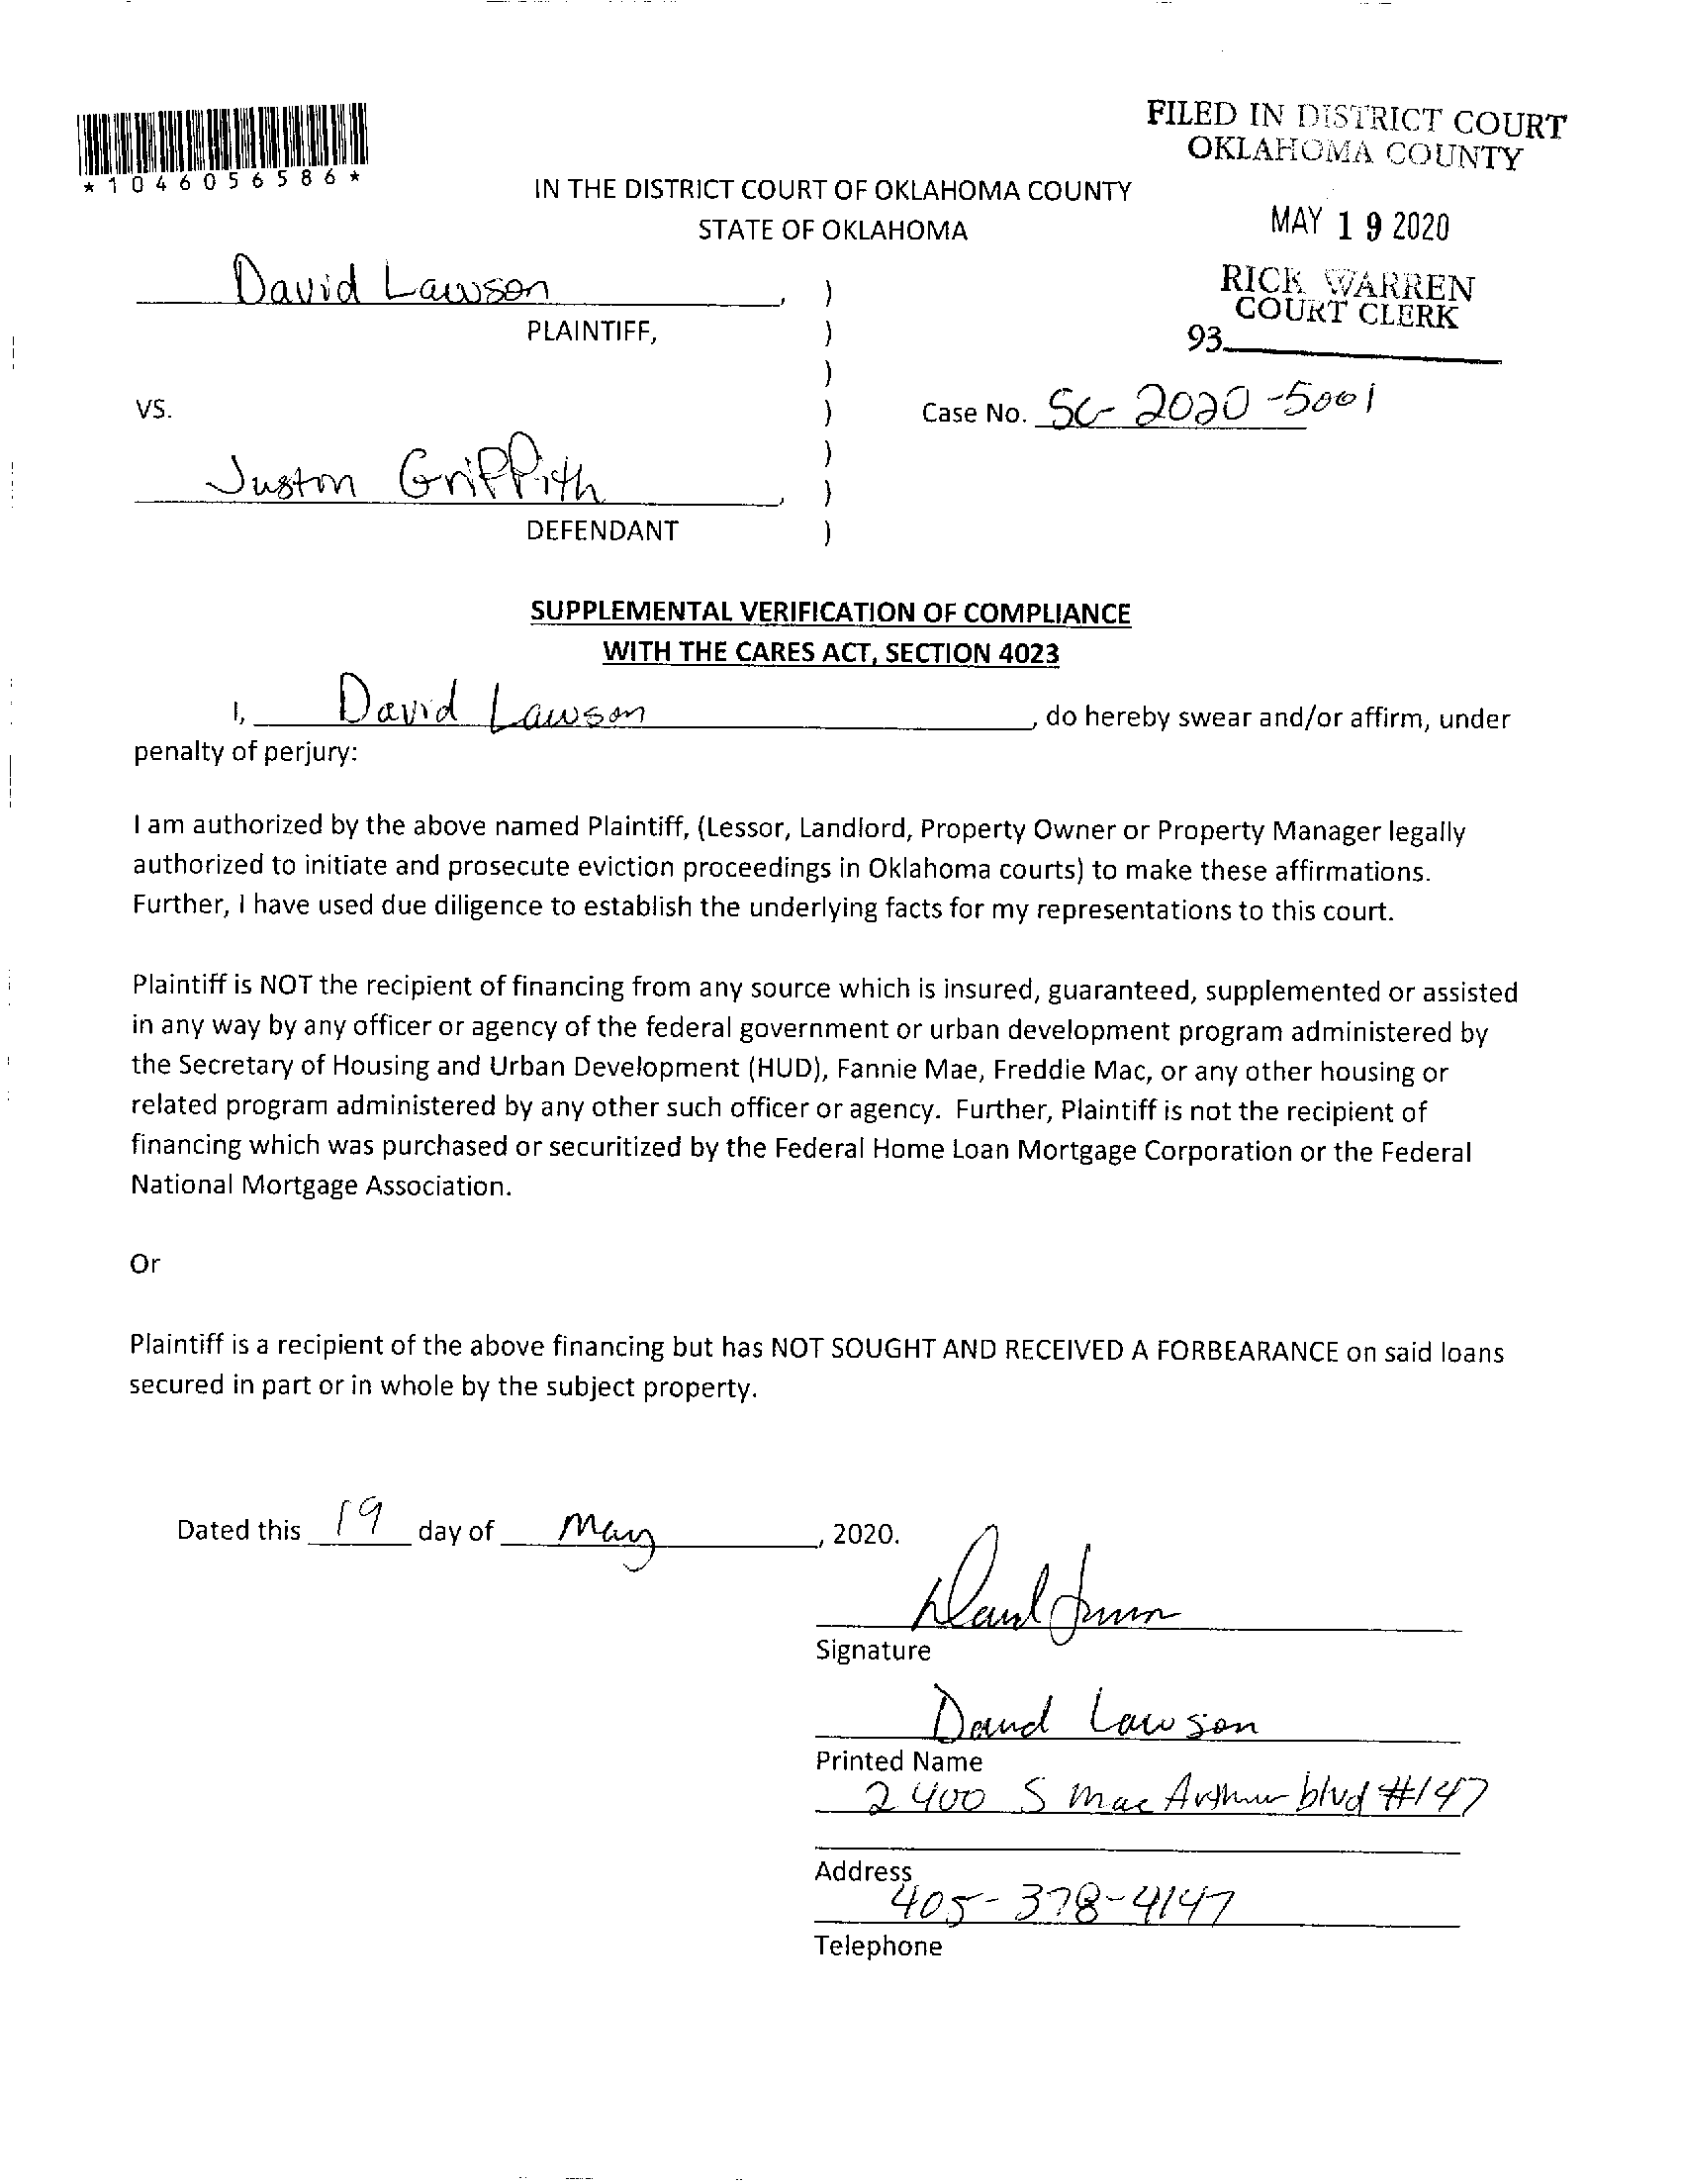 *1046056586*
FILED IN DISTRICT COURT
OKLAHOMA COUNTY
MAY 19 2020
RICK WARREN
COURT CLERK
93
IN THE DISTRICT COURT OF OKLAHOMA COUNTY
STATE OF OKLAHOMA
David Lawson, )
PLAINTIFF, )
)
VS. ) Case No. SC-2020-5001
)
Juston Griffith, )
DEFENDANT )
SUPPLEMENTAL VERIFICATION OF COMPLIANCE
WITH THE CARES ACT, SECTION 4023
I, David Lawson, do hereby swear and/or affirm, under
penalty of perjury:
I am authorized by the above named Plaintiff, (Lessor, Landlord, Property Owner or Property Manager legally
authorized to initiate and prosecute eviction proceedings in Oklahoma courts) to make these affirmations.
Further, I have used due diligence to establish the underlying facts for my representations to this court.
Plaintiff is NOT the recipient of financing from any source which is insured, guaranteed, supplemented or assisted
in any way by any officer or agency of the federal government or urban development program administered by
the Secretary of Housing and Urban Development (HUD), Fannie Mae, Freddie Mac, or any other housing or
related program administered by any other such officer or agency. Further, Plaintiff is not the recipient of
financing which was purchased or securitized by the Federal Home Loan Mortgage Corporation or the Federal
National Mortgage Association.
Or
Plaintiff is a recipient of the above financing but has NOT SOUGHT AND RECEIVED A FORBEARANCE on said loans
secured in part or in whole by the subject property.
Dated this 19 day of May, 2020.
Signature
David Lawson
Printed Name
2400 S MacArthur blvd #147
Address
405-378-4147
Telephone